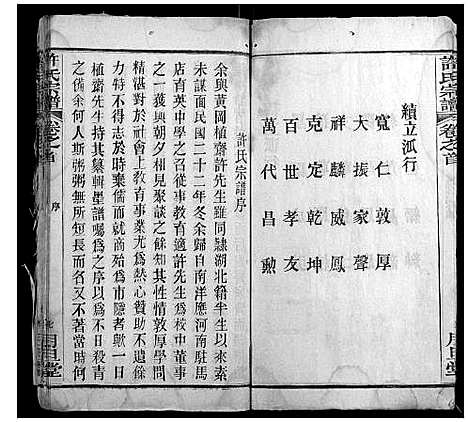 許氏宗譜
卷之首
續立派行
寬仁敦厚
大振家聲
祥麟威鳳
克定乾坤
百世孝友
萬代昌勳
許氏宗譜序
余與黃岡植齋許先生雖同隸湖北籍半生以來素
未謀面民國二十二年冬余歸自南洋應河南駐馬
店育英中學之召從事教育適許先生爲校中董事
之一獲與朝夕相見聚談之餘知其性情敦厚學問
精湛對於社會上教育事業尤爲熱心贊助不遺餘
力特不得志於時棄儒而就商殆爲市隱者歟一日
植齋先生持其纂輯星譜囑爲之序以爲不日殺青
之備余何人斯粥粥無所短長而名又不著當時何
許氏宗譜
卷之首
序